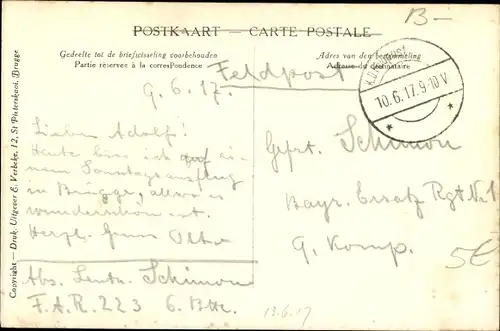 B-
POSTKAART — CARTE POSTALE
Gedeelte tot de briefwisseling voorbehouden
Partie réservée à la correspondence
Adres van den bestemmeling
Adresse du destinataire
10.6.17.9-10V
Feldpost
9.6.17.
Lieber Adolf!
Heute bin ich auf ei-
nem Sonntagsausflug
in Brügge, alles is
wunderschön
Herzl. Gruss Otto
Abs. Leutn. Schimon
F.A.R. 223 6. Bttr.
Gefrt. Schimon
Bayr. Ersatz Rgt Nr 1
9. Komp.
5€
13.6.17
Copyright — Druk. Uitgever E. Verbeke, 12, St Pieterskaai, Brugge